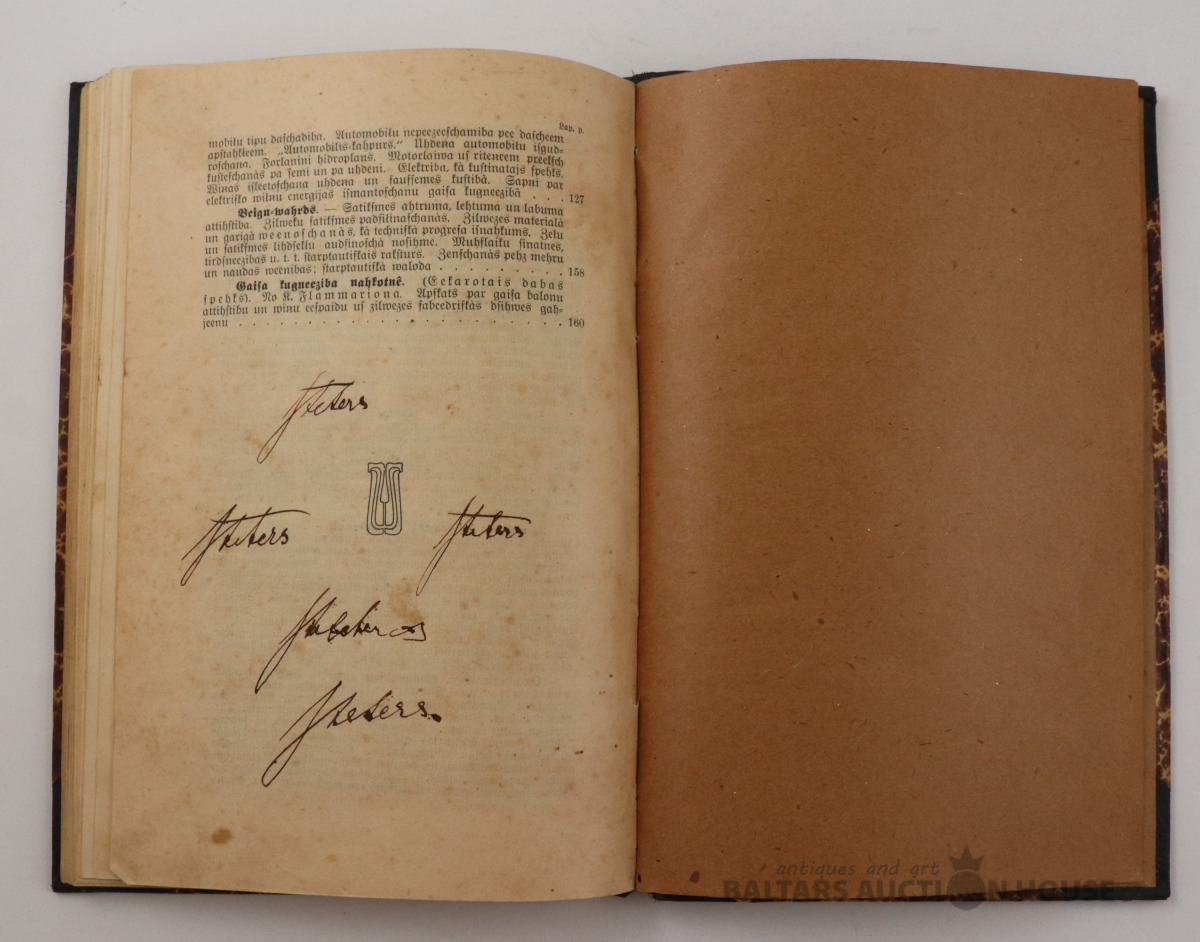 Lap. p.
mobilu tipu daſchadiba. Automobilu nepeezeeſchamiba pee daſcheem
apſtahkleem. „Automobilis-kahpurs.“ Uhdena automobilu iſgud-
roſchana. Forlanini hidroplans. Motorlaiwa uſ riteneem preekſch
kuſteſchanàs pa ſemi un pa uhdeni. Elektriba, kà kuſtinatajs ſpehks.
Winas iſleetoſchana uhdena un ſauſſemes kuſtibâ. Sapni par
elektriſko wilnu energijas iſmantoſchanu gaiſa kugneezibâ . . . 127
Beigu-wahrds. — Satikſmes ahtruma, lehtuma un labuma
attihſtiba. Zilweku ſatikſmes padſilinaſchanàs. Zilwezes materialà
un garigà weenoſchanàs, kà techniſkà progreſa iſnahkums. Zeļu
un ſatikſmes lihdſekļu audſinoſchà noſihme. Muhſlaiku ſinatnes,
tirdſneezibas u. t. t. ſtarptautiſkais rakſturs. Zenſchanàs pehz mehru
un naudas weenibas; ſtarptautiſkà waloda . . . . . . . . . 158
Gaiſa kugneeziba nahkotnê. (Eekarotais dabas
ſpehks). No K. Flammariona. Apſkats par gaiſa balonu
attihſtibu un winu eeſpaidu uſ zilwezes ſabeedriſkàs dſihwes gah-
jeenu . . . . . . . . . . . . . . . . . . . . . . 160
antiques and art
BALTARS AUCTION HOUSE